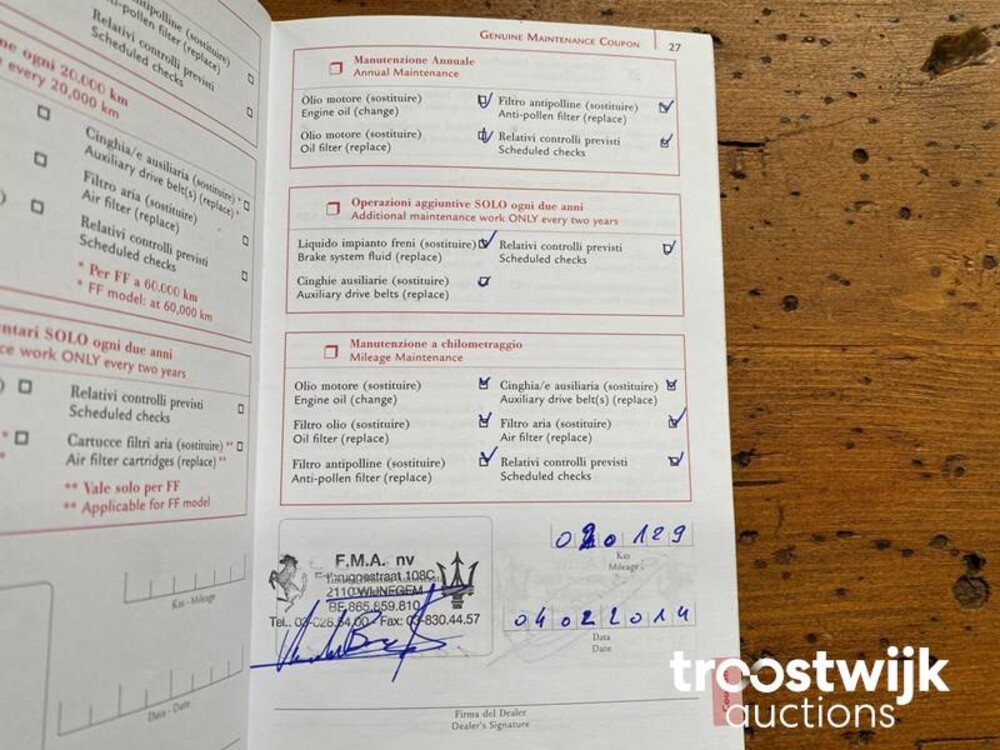 antipolline (sostituire)
pollen filter (replace)
Relativi controlli previsti
Scheduled checks
ogni 20.000 km
every 20,000 km
Cinghia/e ausiliaria (sostituire) *
Auxiliary drive belt(s) (replace) *
Filtro aria (sostituire)
Air filter (replace)
Relativi controlli previsti
Scheduled checks
* Per FF a 60.000 km
* FF model: at 60,000 km
SOLO ogni due anni
work ONLY every two years
Relativi controlli previsti
Scheduled checks
Cartucce filtri aria (sostituire) **
Air filter cartridges (replace) **
** Vale solo per FF
** Applicable for FF model
Km - Mileage
Data - Date
Genuine Maintenance Coupon 27
Manutenzione Annuale
Annual Maintenance
Olio motore (sostituire)
Engine oil (change)
Filtro antipolline (sostituire)
Anti-pollen filter (replace)
Olio motore (sostituire)
Oil filter (replace)
Relativi controlli previsti
Scheduled checks
Operazioni aggiuntive SOLO ogni due anni
Additional maintenance work ONLY every two years
Liquido impianto freni (sostituire)
Brake system fluid (replace)
Relativi controlli previsti
Scheduled checks
Cinghie ausiliarie (sostituire)
Auxiliary drive belts (replace)
Manutenzione a chilometraggio
Mileage Maintenance
Olio motore (sostituire)
Engine oil (change)
Cinghia/e ausiliaria (sostituire)
Auxiliary drive belt(s) (replace)
Filtro olio (sostituire)
Oil filter (replace)
Filtro aria (sostituire)
Air filter (replace)
Filtro antipolline (sostituire)
Anti-pollen filter (replace)
Relativi controlli previsti
Scheduled checks
F.M.A. nv
108C
2110 WIJNEGEM
BE 865.859.810
Tel.: Fax: 03-830.44.57
129
Km
Mileage
04022014
Data
Date
Firma del Dealer
Dealer's Signature
troostwijk
auctions